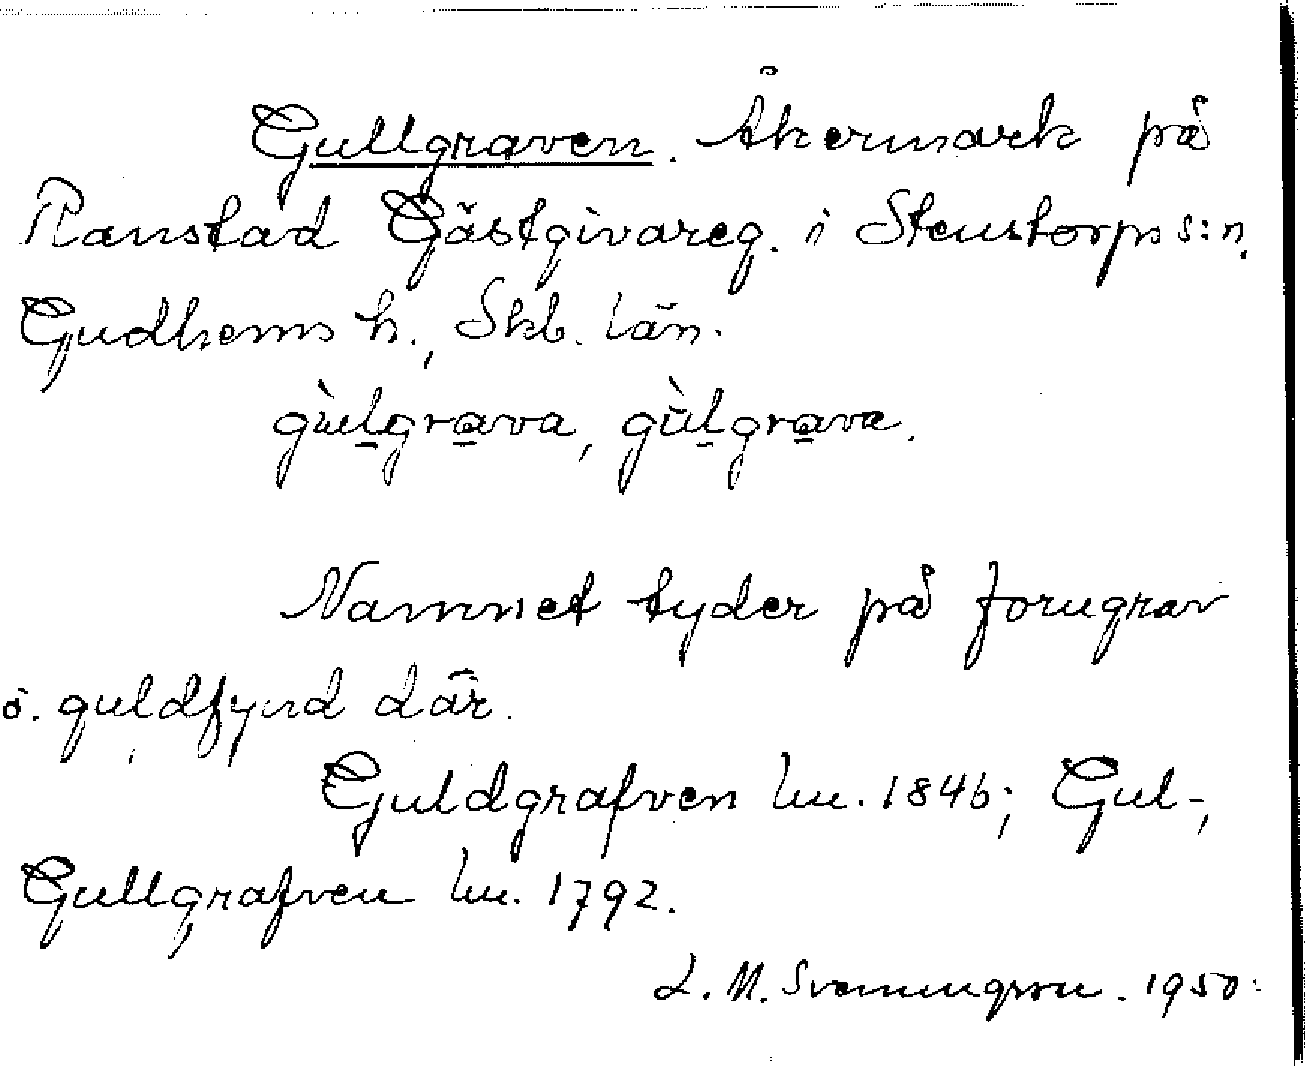 Gullgraven. Åkermark på
Ranstad Gästgivareg. i Stenstorps s:n,
Gudhems h., Skb. län.
gùlgrava, gùlgrava.
Namnet tyder på forngrav
o. guldfynd där.
Guldgrafven Lm. 1846; Gul-,
Gullgrafven Lm. 1792.
L. M. Svenungsson. 1950.